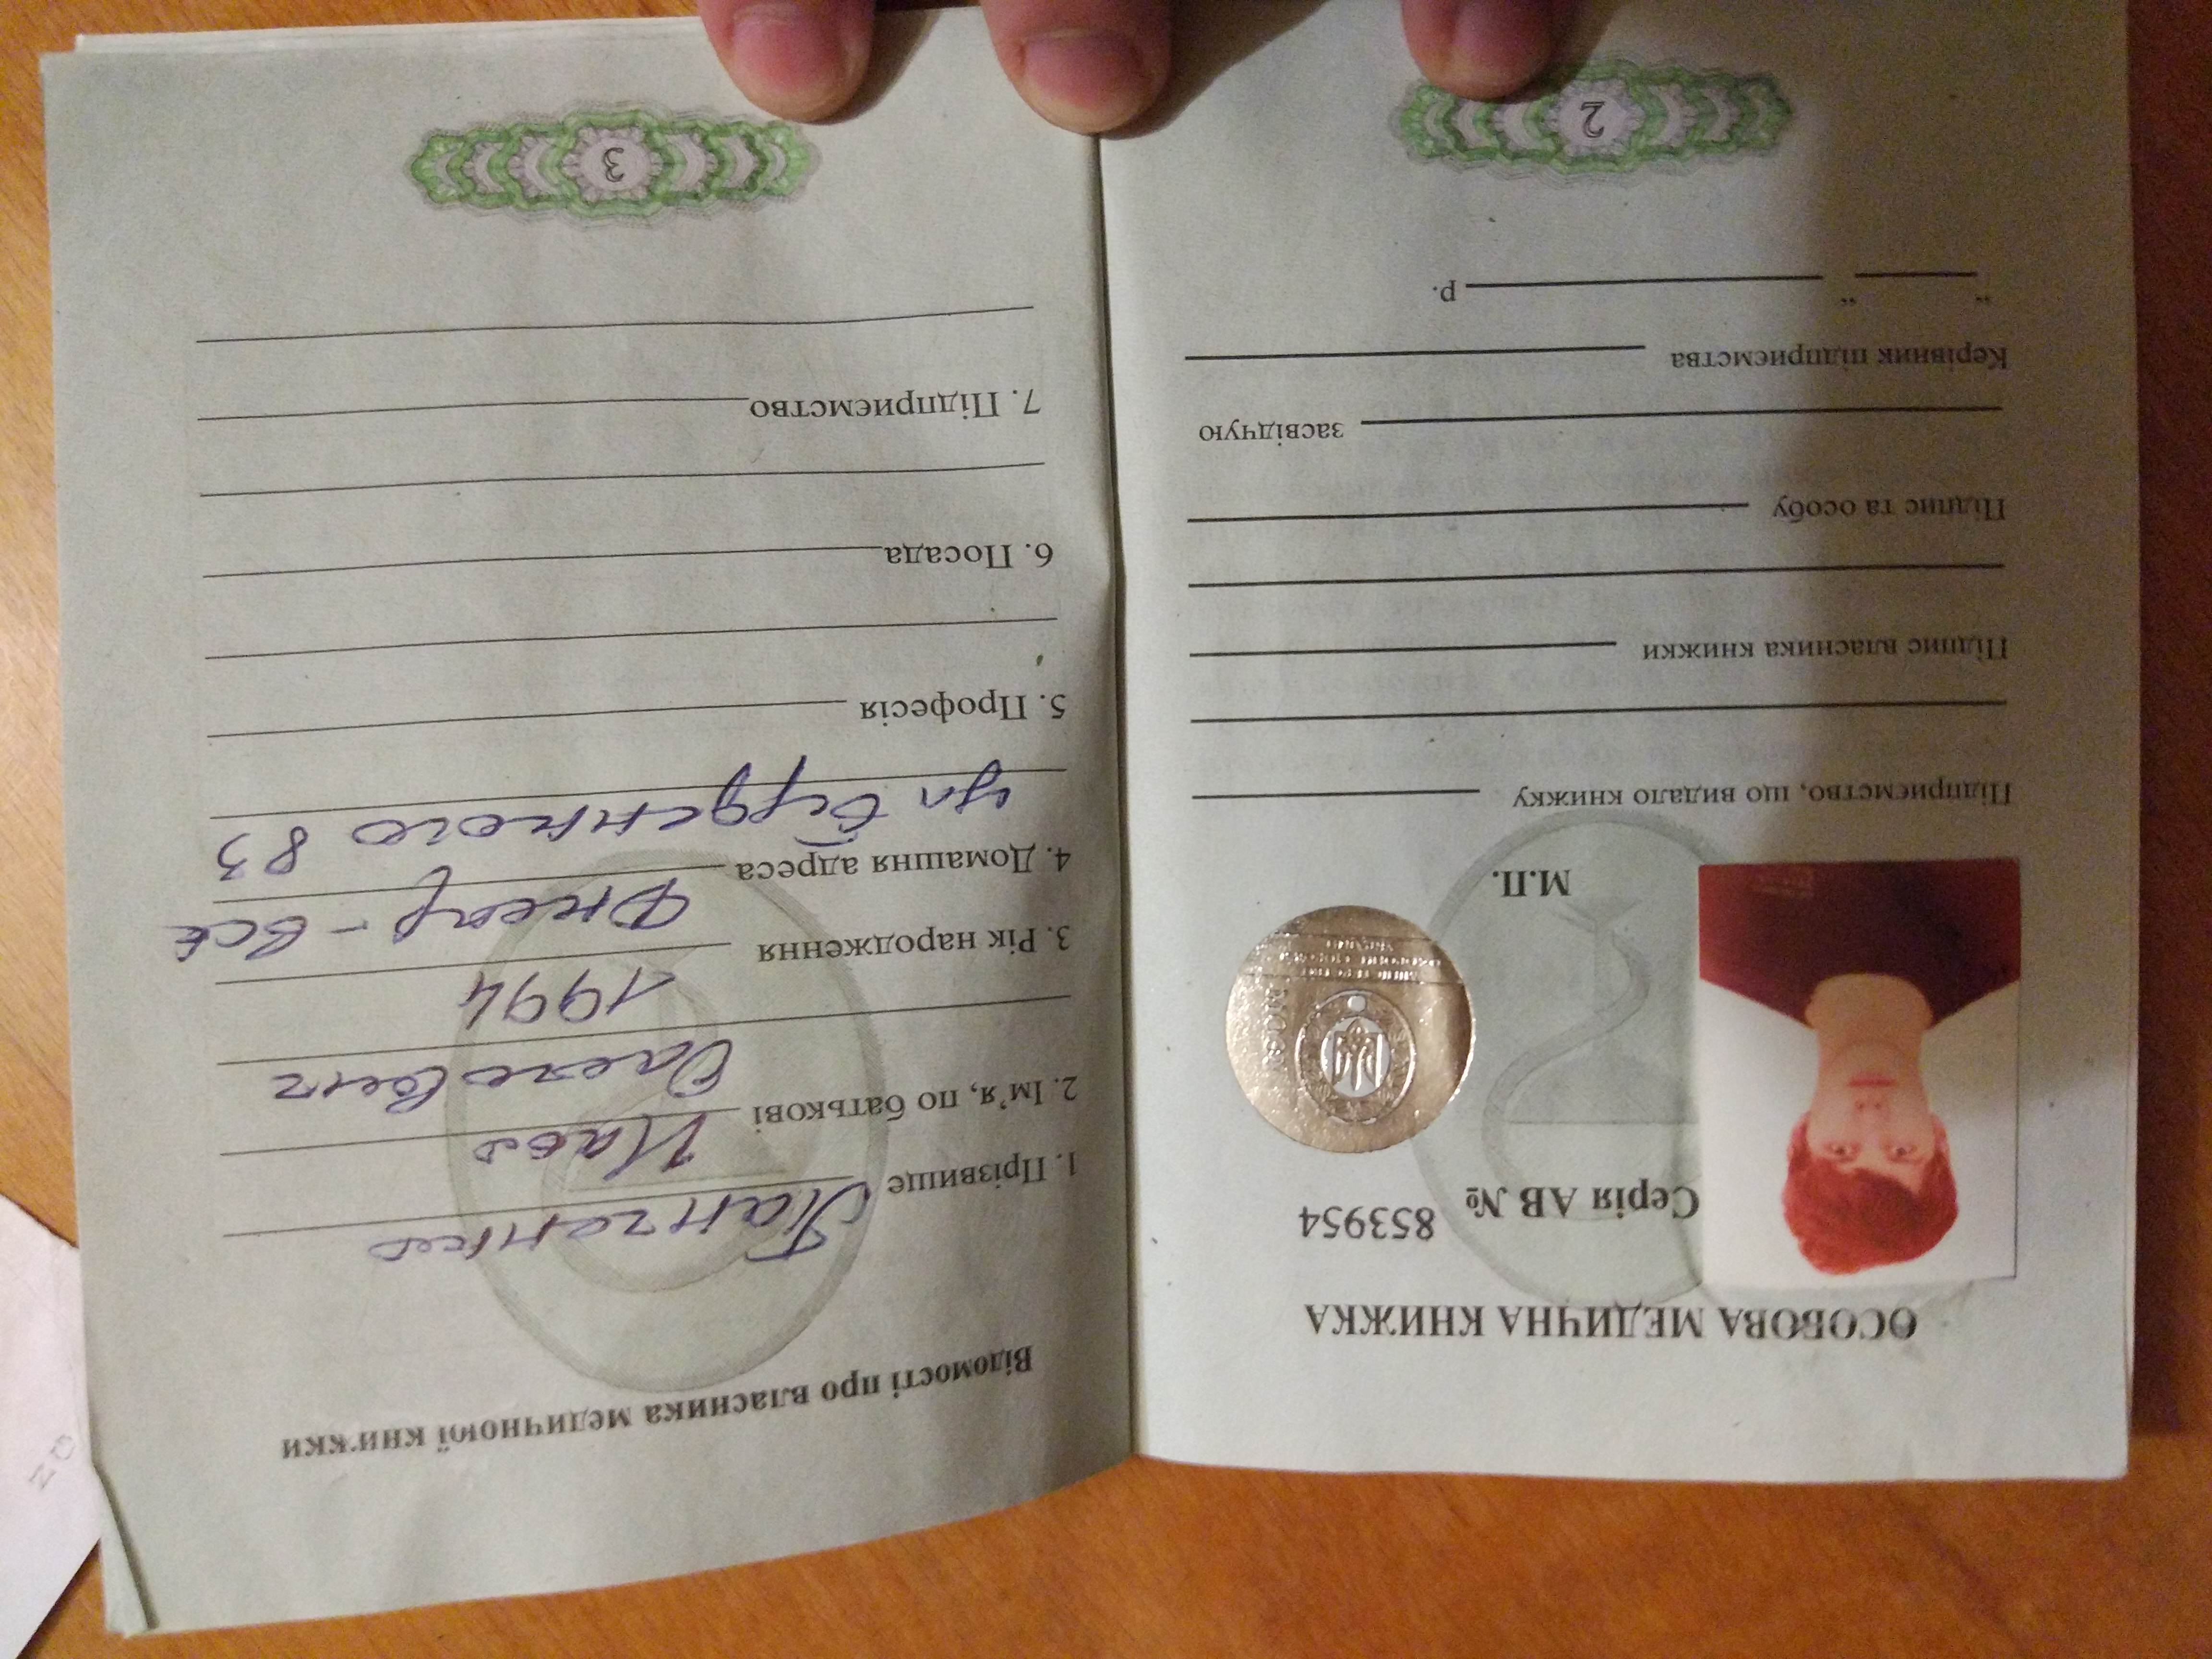 ОСОБОВА МЕДИЧНА КНИЖКА
Серія АВ № 853954
М.П.
Підприємство, що видало книжку
Підпис власника книжки
Підпис та особу
засвідчую
Керівник підприємства
" " р.
2
Відомості про власника медичної книжки
1. Прізвище Панченко
2. Ім'я, по батькові
Олегович
1994
3. Рік народження
4. Домашня адреса
ул 83
5. Професія
6. Посада
7. Підприємство
3